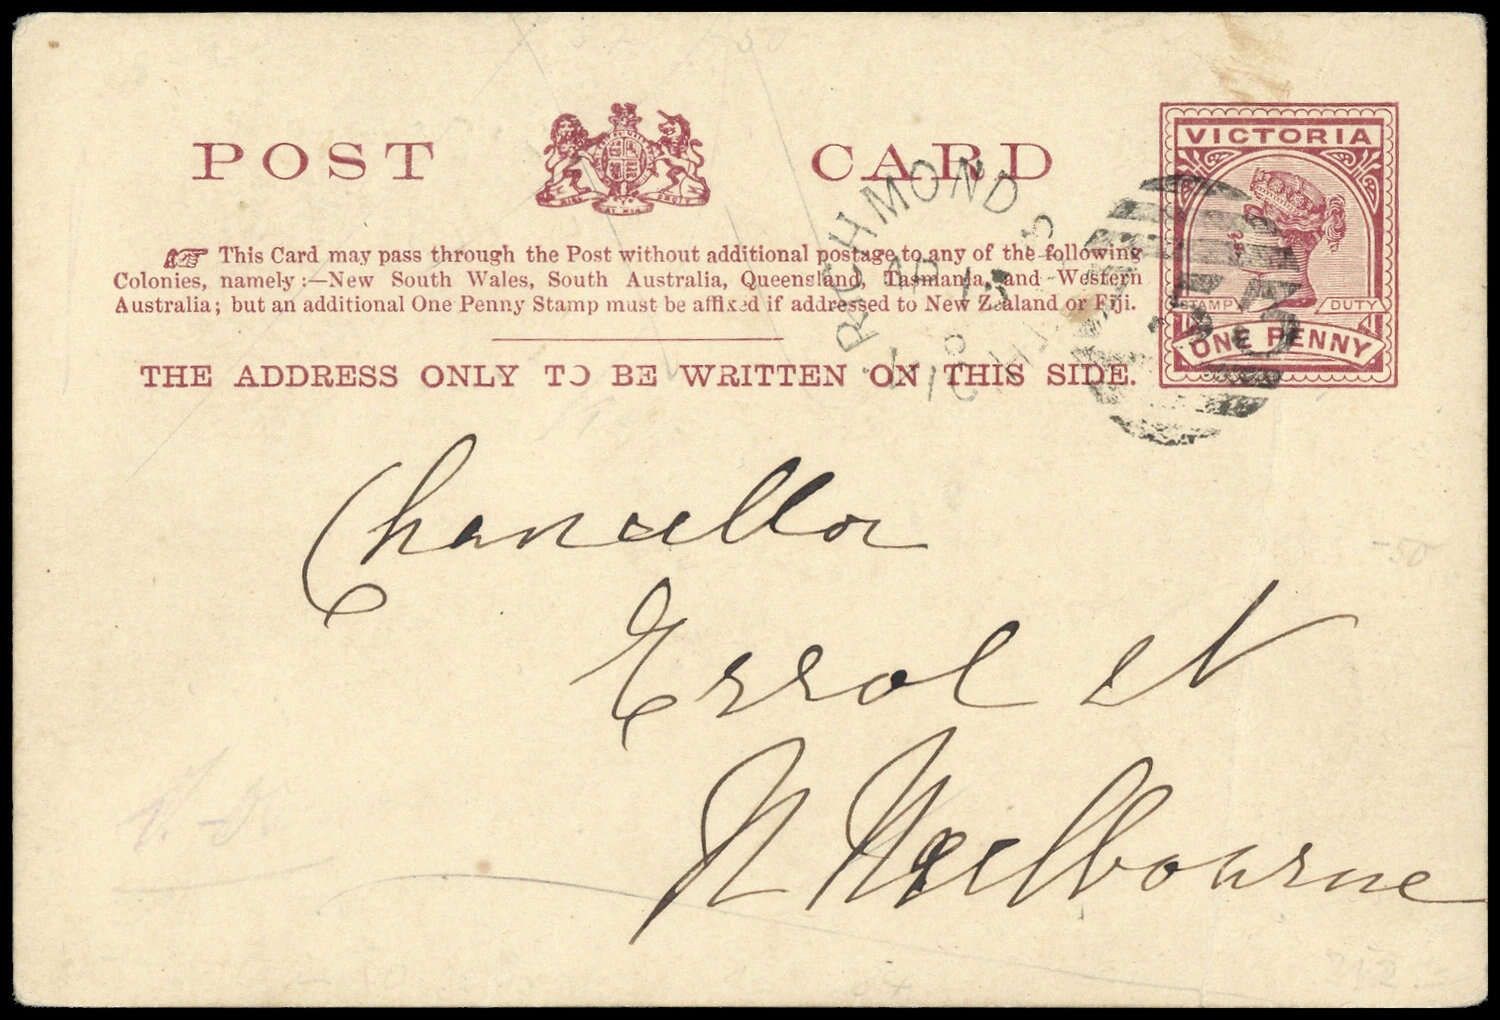 POST CARD
VICTORIA
STAMP DUTY
ONE PENNY
☞ This Card may pass through the Post without additional postage to any of the following
Colonies, namely:—New South Wales, South Australia, Queensland, Tasmania, and Western
Australia; but an additional One Penny Stamp must be affixed if addressed to New Zealand or Fiji.
THE ADDRESS ONLY TO BE WRITTEN ON THIS SIDE.
RICHMOND
Chancellor
Errol st
N Melbourne